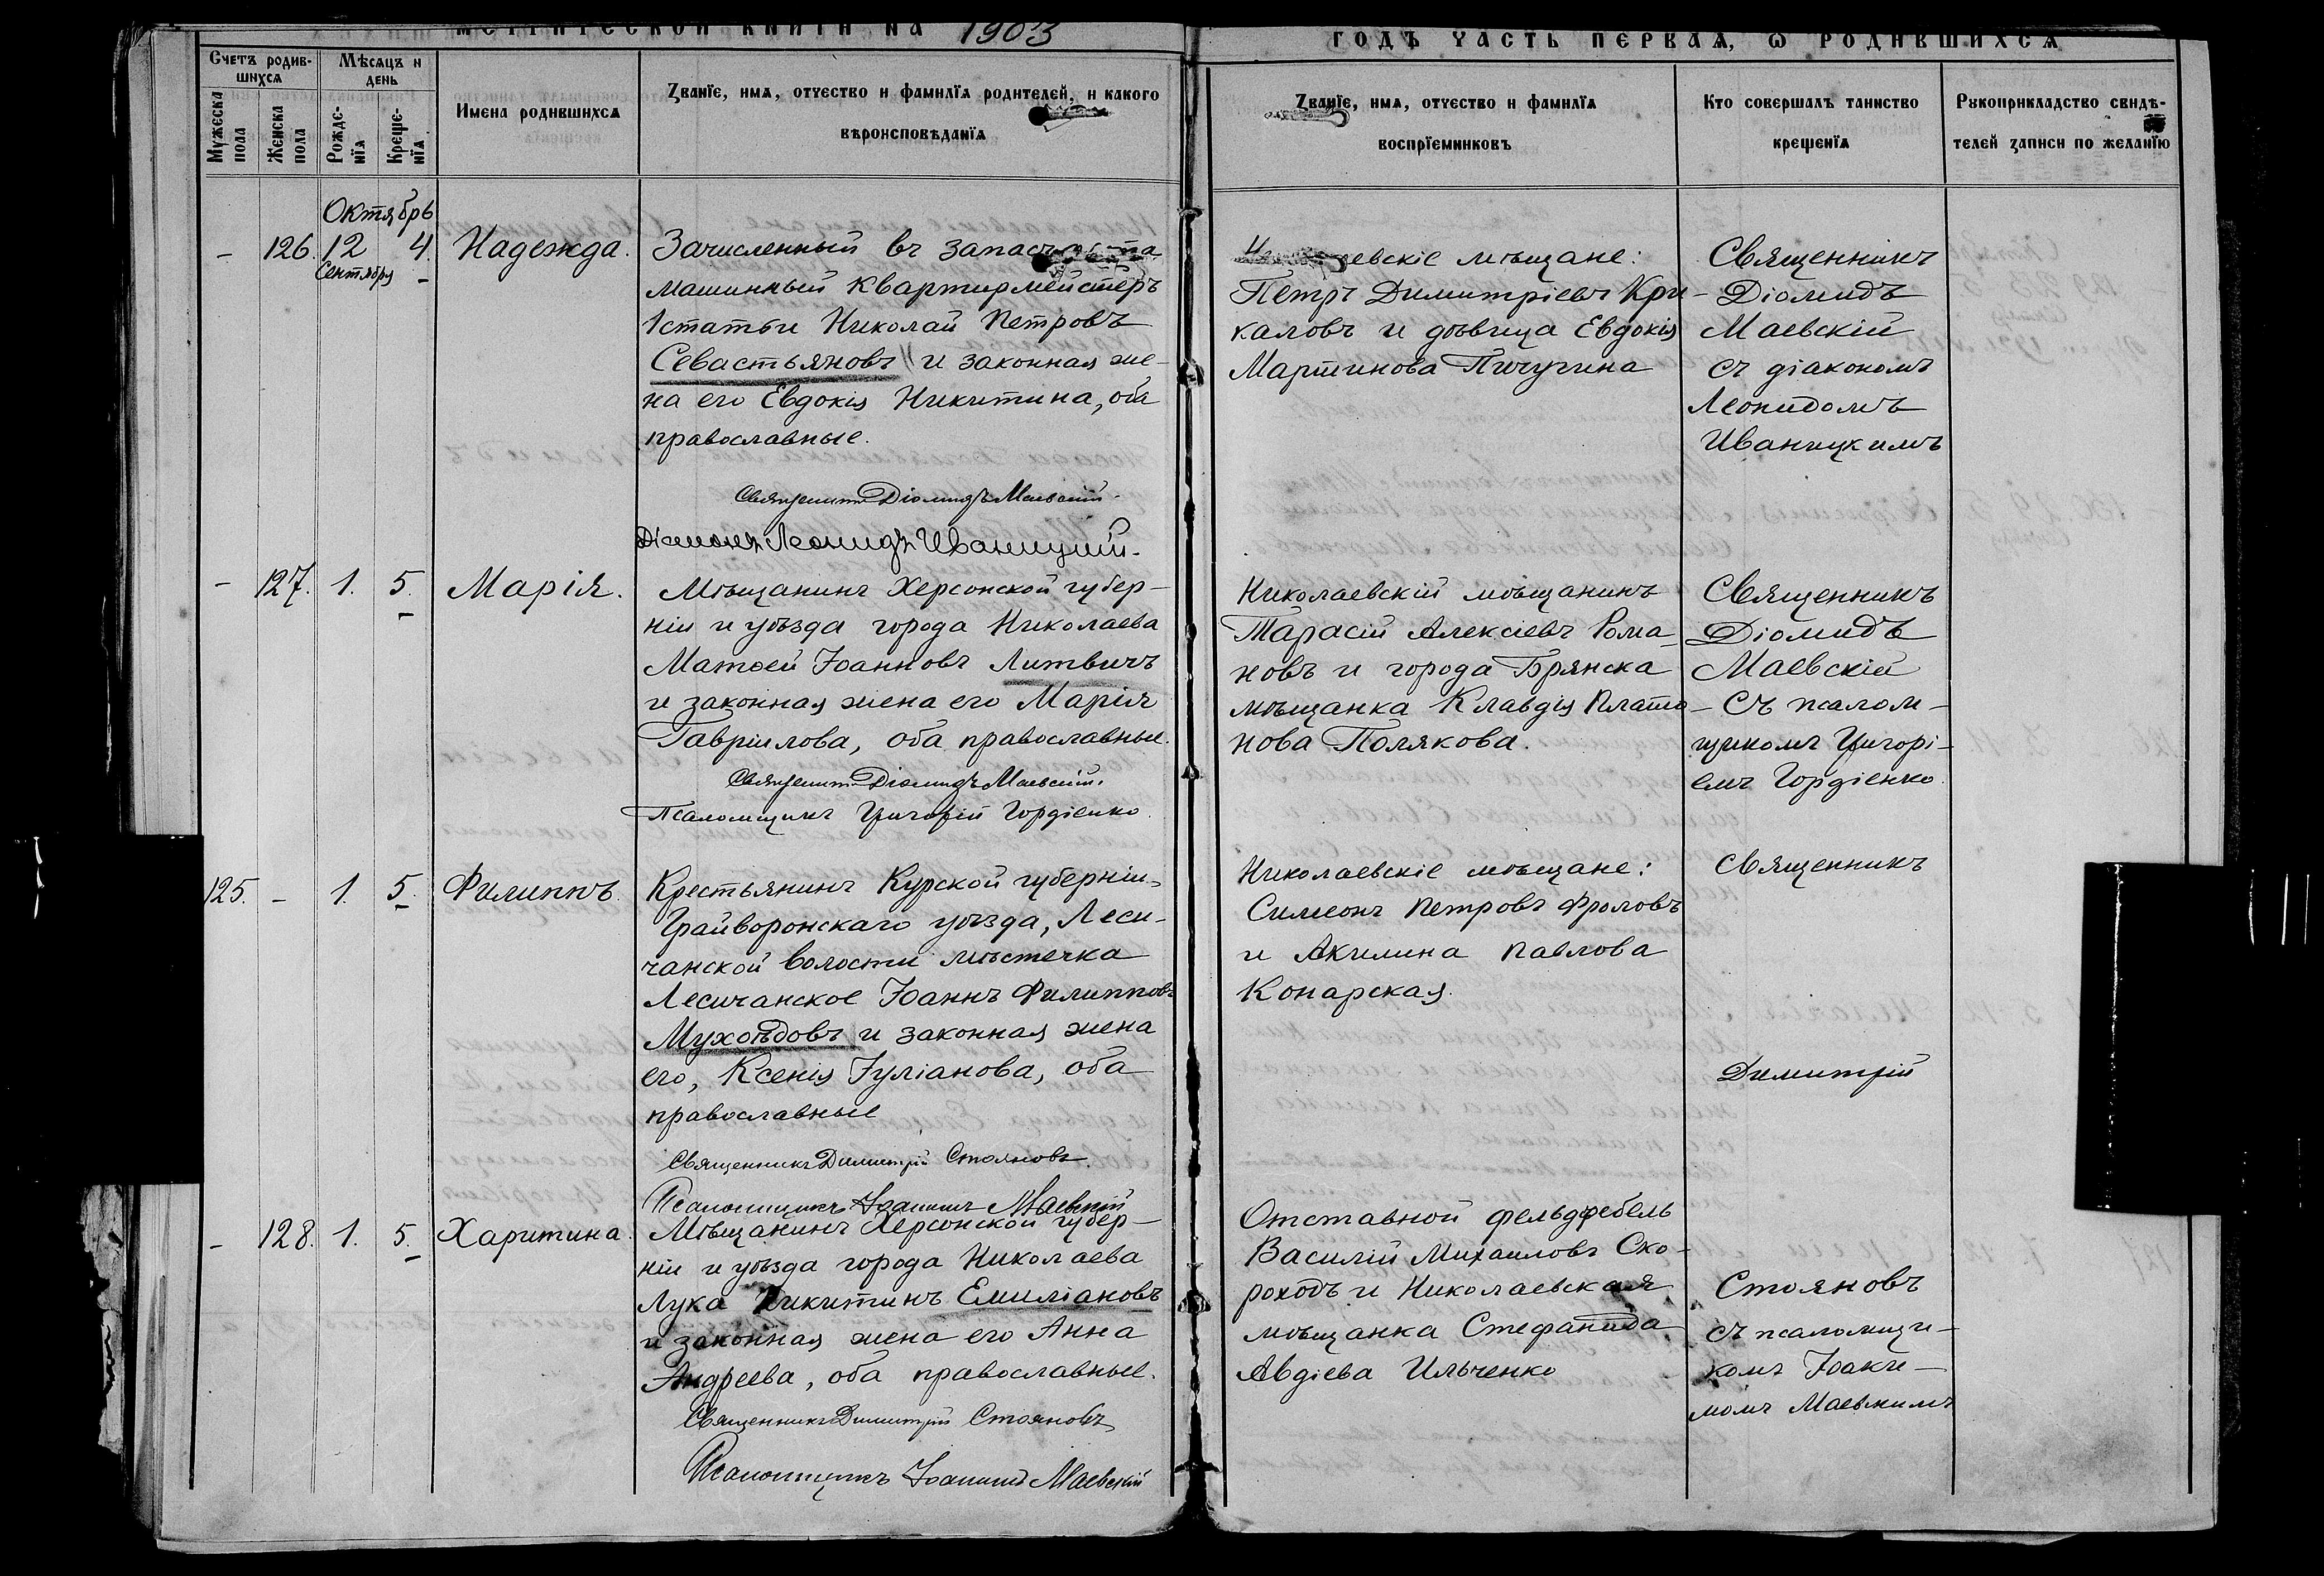 МЕТРИЧЕСКОЙ КНИГИ НА 1903
ГОДЪ ЧАСТЬ ПЕРВАЯ, Ѡ РОДИВШИХСЯ
Счетъ родив-
шихся
Мѣсяцъ и
день
Мужеска
пола
Женска
пола
Рожде-
нїя
Креще-
нїя
Имена родившихся
Званїе, имя, отчество и фамилїя родителей, и какого
вѣроисповѣданїя
Званїе, имя, отчество и фамилїя
воспрїемниковъ
Кто совершалъ таинство
крещенїя
Рукоприкладство свидѣ-
телей записи по желанїю
Октябрь
– 126. 12 4. Надежда.
Сентября –
Зачисленный въ запасъ
машинный квартирмейстеръ
1 статьи Николай Петровъ
Севастьяновъ и законная же-
на его Евдокія Никитина, оба
православные.
Священникъ Діомидъ Маевскій.
Діаконъ Леонидъ Иваницкій.
мѣщане:
Петръ Димитріевъ Кри-
каловъ и дѣвица Евдокія
Мартинова Пичугина
Священникъ
Діомидъ
Маевскій
съ діакономъ
Леонидомъ
Иваницкимъ
– 127. 1. 5. Марія.
–
Мѣщанинъ Херсонской губер-
ніи и уѣзда города Николаева
Матѳей Іоанновъ Литвичъ
и законная жена его Марія
Гавріилова, оба православные.
Священникъ Діомидъ Маевскій.
Псаломщикъ Григорій Гордіенко.
Николаевскій мѣщанинъ
Тарасій Алексіевъ Рома-
новъ и города Брянска
мѣщанка Клавдія Плато-
нова Полякова.
Священникъ
Діомидъ
Маевскій
съ псалом-
щикомъ Григорі-
емъ Гордіенко.
125. – 1. 5. Филиппъ.
–
Крестьянинъ Курской губерніи,
Грайворонскаго уѣзда, Леси-
чанской волости мѣстечка
Лесичанское Іоаннъ Филипповъ
Мухоѣдовъ и законная жена
его, Ксенія Іуліанова, оба
православные
Священникъ Димитрій Стояновъ.
Псаломщикъ Іоакимъ Маевскій
Николаевскіе мѣщане:
Симеонъ Петровъ Фроловъ
и Акилина Павлова
Конарская.
Священникъ
Димитрій
– 128. 1. 5. Харитина.
–
Мѣщанинъ Херсонской губер-
ніи и уѣзда города Николаева
Лука Никитинъ Емиліановъ
и законная жена его Анна
Андреева, оба православные.
Священникъ Димитрій Стояновъ
Псаломщикъ Іоакимъ Маевскій
Отставной фельдфебель
Василій Михаиловъ Ско-
роходъ и Николаевская
мѣщанка Стефанида
Авдіева Ильченко
Стояновъ
съ псаломщи-
комъ Іоаки-
момъ Маевкимъ